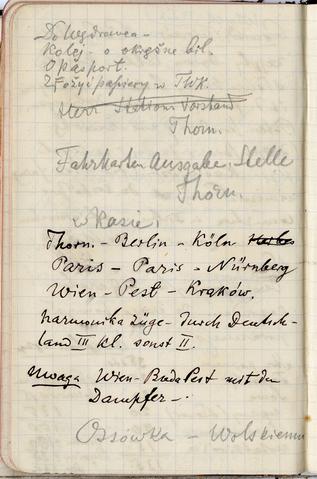 Kolej - o okrężne bil.
O paszport.
Złożyć papiery w TWK.
Herr Stations Vorstand
Thorn.
Fahrkarten Ausgabe, Stelle
Thorn.
w Kasie:
Thorn. - Berlin - Köln
Paris - Paris - Nürnberg
Wien - Pest - Kraków.
Harmonika Züge - durch Deutsch-
land III kl. sonst II.
Uwaga Wien - Budapest mit dem
Dampfer -.
Ossówka - Wolskiemu